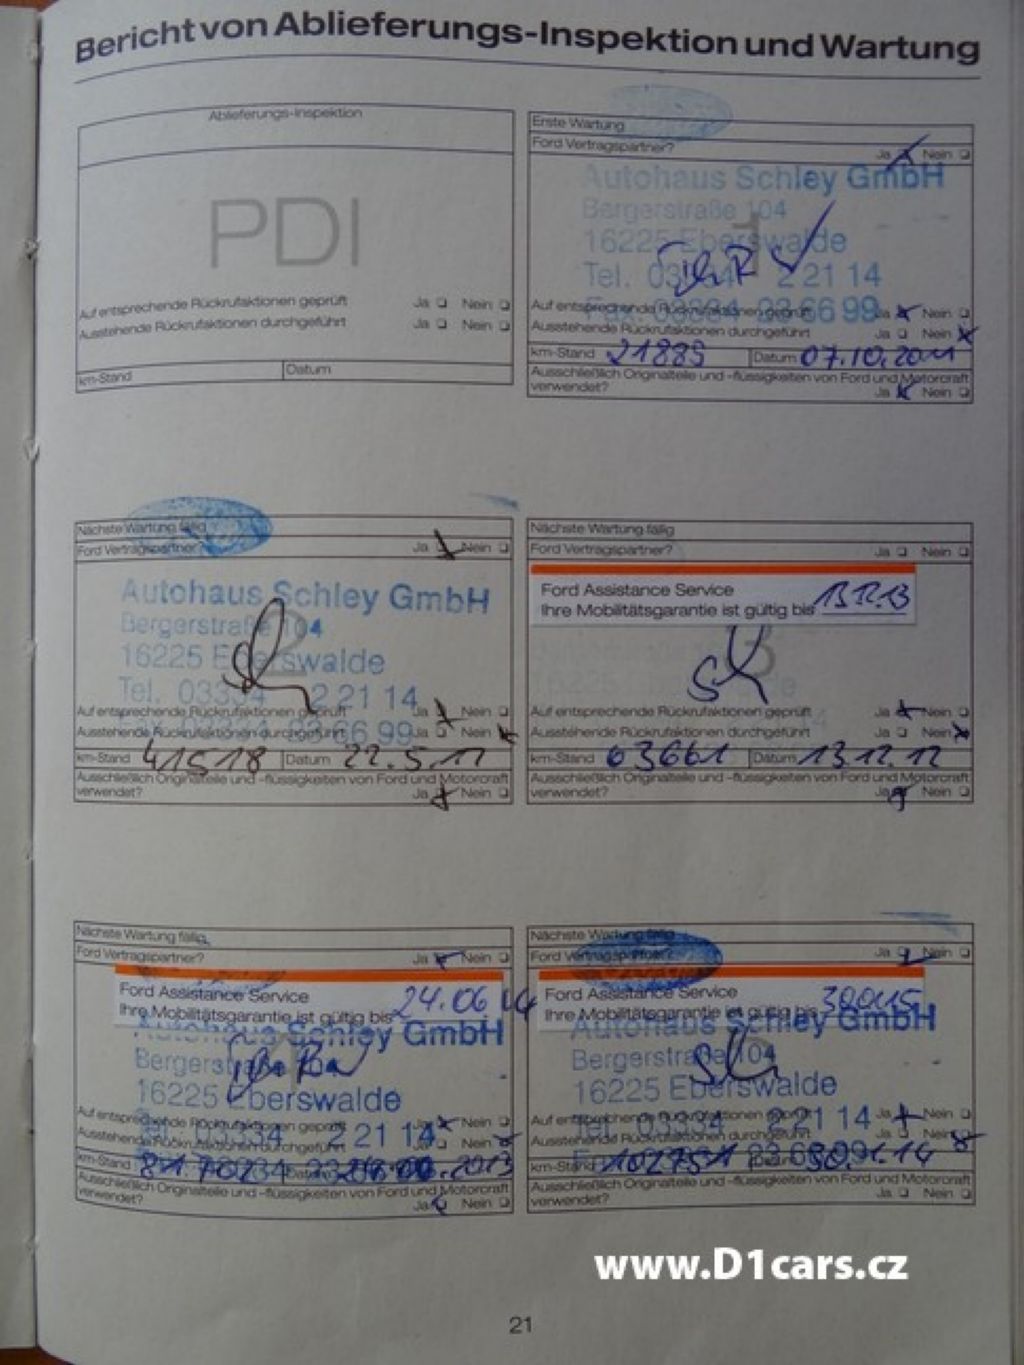 Bericht von Ablieferungs-Inspektion und Wartung
Ablieferungs-Inspektion
PDI
Auf entsprechende Rückrufaktionen geprüft Ja Nein
Ausstehende Rückrufaktionen durchgeführt Ja Nein
km-Stand Datum
Erste Wartung
Ford Vertragspartner? Ja Nein
Autohaus Schley GmbH
Bergerstraße 104
1
16225 Eberswalde
Tel. 03334 2 21 14
Auf entsprechende Rückrufaktionen geprüft Ja Nein
Fax. 03334 23 66 99
Ausstehende Rückrufaktionen durchgeführt Ja Nein
km-Stand 21889 Datum 07.10.2011
Ausschließlich Originalteile und -flüssigkeiten von Ford und Motorcraft
verwendet? Ja Nein
Nächste Wartung fällig
Ford Vertragspartner? Ja Nein
Autohaus Schley GmbH
Bergerstraße 104
2
16225 Eberswalde
Tel. 03334 2 21 14
Auf entsprechende Rückrufaktionen geprüft Ja Nein
23 66 99
Ausstehende Rückrufaktionen durchgeführt Ja Nein
km-Stand 41518 Datum 22.5.12
Ausschließlich Originalteile und -flüssigkeiten von Ford und Motorcraft
verwendet? Ja Nein
Nächste Wartung fällig
Ford Vertragspartner? Ja Nein
Ford Assistance Service
Ihre Mobilitätsgarantie ist gültig bis 13.12.13
3
Auf entsprechende Rückrufaktionen geprüft Ja Nein
Ausstehende Rückrufaktionen durchgeführt Ja Nein
km-Stand 63661 Datum 13.12.12
Ausschließlich Originalteile und -flüssigkeiten von Ford und Motorcraft
verwendet? Ja Nein
Nächste Wartung fällig
Ford Vertragspartner? Ja Nein
Ford Assistance Service
Ihre Mobilitätsgarantie ist gültig bis 24.06.14
Autohaus Schley GmbH
Bergerstraße 104
16225 Eberswalde
Auf entsprechende Rückrufaktionen geprüft Ja Nein
Tel. 03334 2 21 14
Ausstehende Rückrufaktionen durchgeführt Ja Nein
km-Stand Datum
Ausschließlich Originalteile und -flüssigkeiten von Ford und Motorcraft
verwendet? Ja Nein
Nächste Wartung fällig
Ford Vertragspartner? Ja Nein
Ford Assistance Service
Ihre Mobilitätsgarantie ist gültig bis 300115
Autohaus Schley GmbH
Bergerstraße 104
16225 Eberswalde
Auf entsprechende Rückrufaktionen geprüft Ja Nein
Tel. 03334 2 21 14
Ausstehende Rückrufaktionen durchgeführt Ja Nein
km-Stand 102751 Datum 30.1.14
Ausschließlich Originalteile und -flüssigkeiten von Ford und Motorcraft
verwendet? Ja Nein
www.D1cars.cz
21